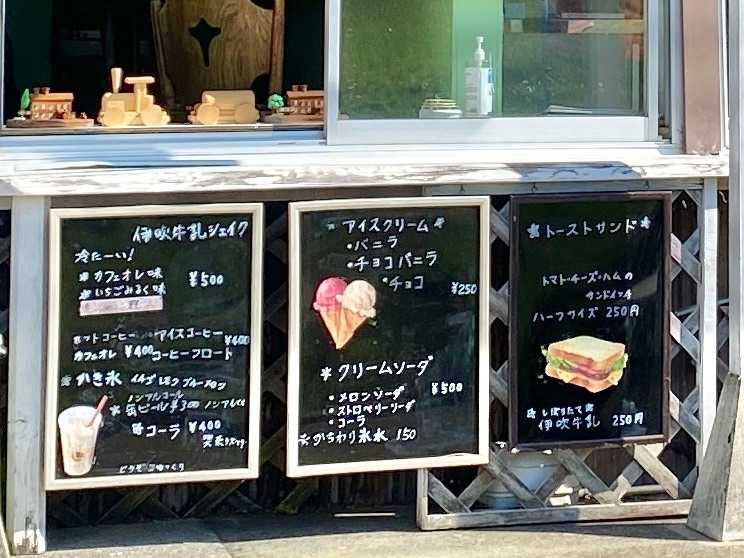 伊吹牛乳シェイク
冷たーい!
カフェオレ味
いちごみるく味
¥500
ホットコーヒー アイスコーヒー ¥400
カフェオレ ¥400 コーヒーフロート
かき氷 イチゴ レモン ブルーハワイ
ノンアルコール
缶ビール ¥300
コーラ ¥400
どうぞごゆっくり
アイスクリーム
・バニラ
・チョコバニラ
・チョコ
¥250
クリームソーダ
・メロンソーダ
・ストロベリーソーダ
・コーラ
¥500
☆かちわり氷 150
トーストサンド
トマト・チーズ・ハムの
サンドイッチ
ハーフサイズ 250円
しぼりたて
伊吹牛乳 250円